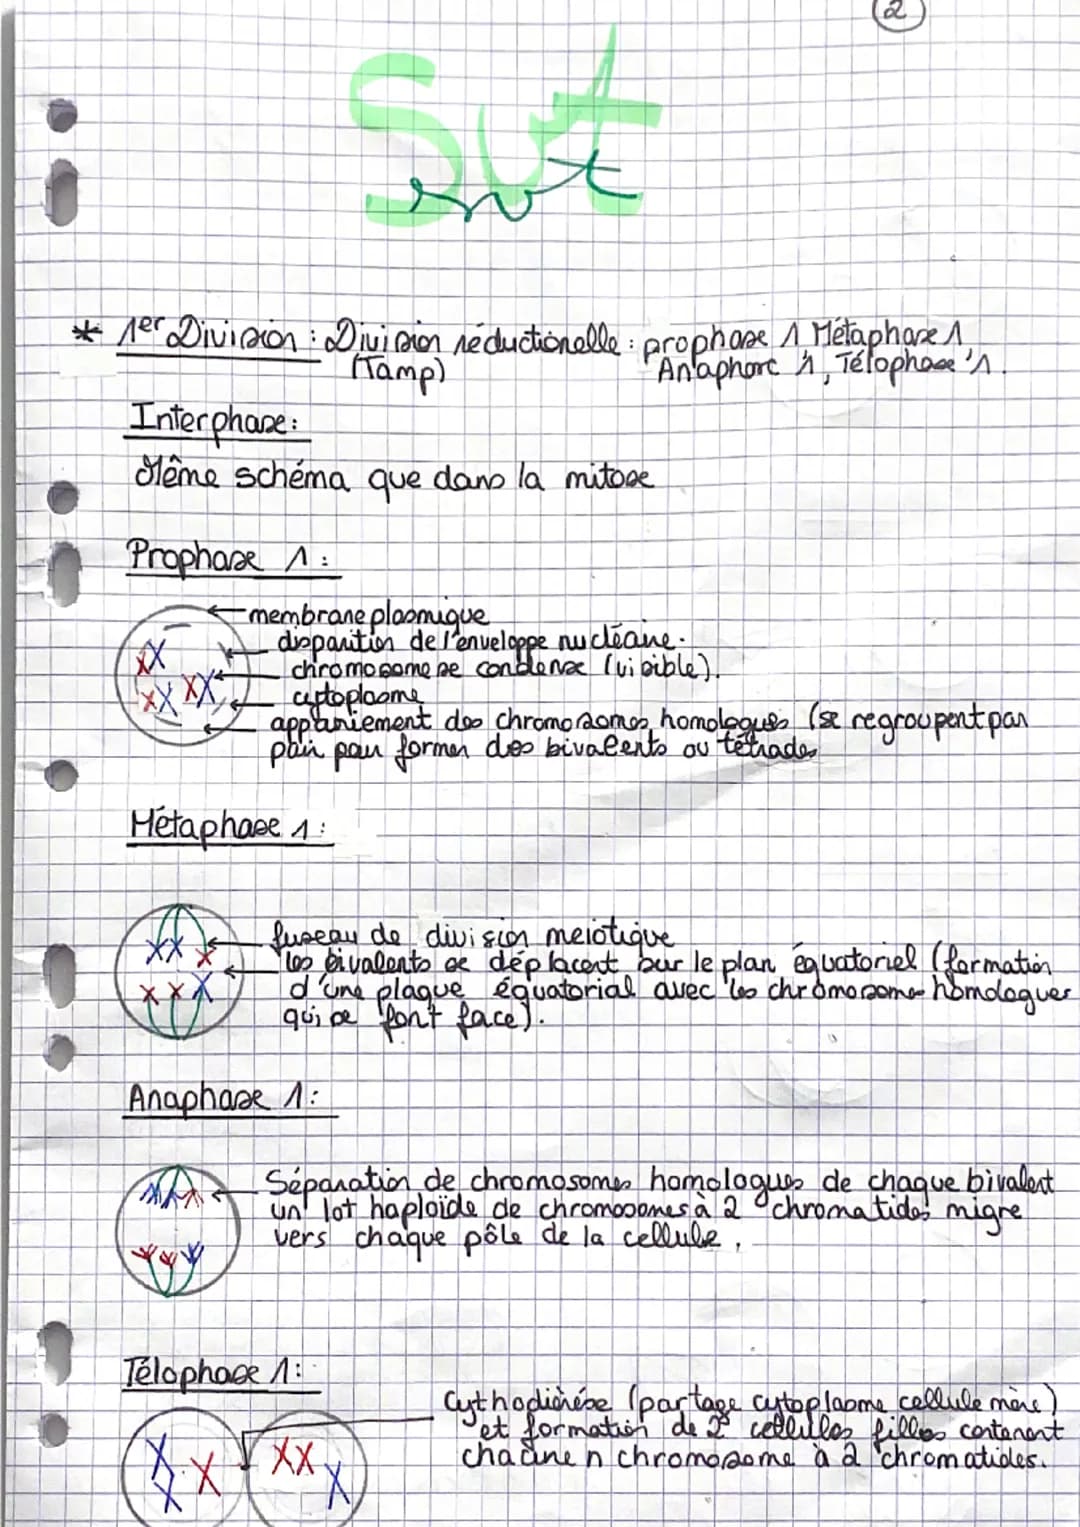 2
Svt
svt
* 1er Division : Division réductionelle : prophase 1 Métaphase 1,
(Tamp) Anaphore 1, Télophase 1.
Interphase :
Même schéma que dans la mitose
Prophase 1 :
membrane plasmique
disparition de l'enveloppe nucléaire.
chromosome se condense (visible).
cytoplasme
appariement des chromosomes homologues (se regroupent par
pair pour former des bivalents ou tétrades
Métaphase 1 :
fuseau de division meiotique
les bivalents se déplacent sur le plan équatoriel (formation
d'une plaque équatorial avec les chromosomes homologues
qui se font face).
Anaphase 1 :
Séparation de chromosomes homologues de chaque bivalent
un lot haploïde de chromosomes à 2 chromatides migre
vers chaque pôle de la cellule.
Télophase 1 :
(partage cytoplasme cellule mère)
et formation de 2 cellules filles contenent
chacune n chromosome à 2 chromatides.